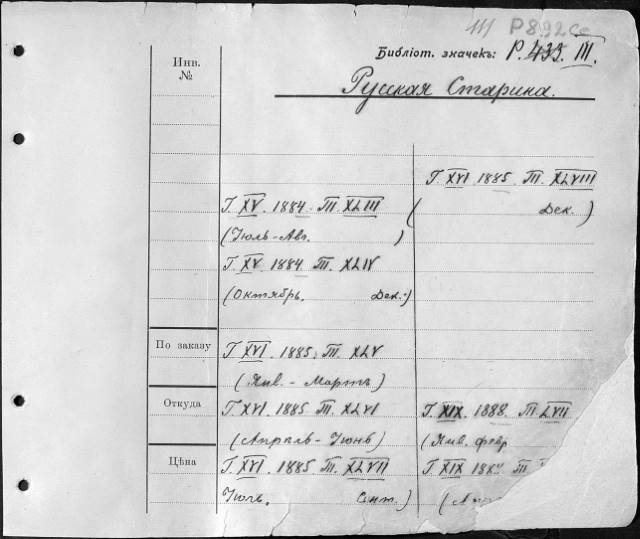 Р892Се
Библіот. значекъ: Р. 433. III.
Инв.
№
Русская Старина.
Г. XVI. 1885. Т. XLVIII
( Дек. )
Г. XV. 1884. Т. XLIII
(Іюль-Авг. )
Г. XV. 1884 Т. XLIV
(Октябрь. Дек.)
По заказу
Г XVI. 1885. Т. XLV
(Янв. - Мартъ)
Откуда
Г XVI. 1885 Т. XLVI
(Апрѣль-Іюнь)
Г. XIX. 1888. Т. LVII
(Янв. февр
Цѣна
Г. XVI. 1885 Т. XLVII
Іюль. Сент.)
Г. XIX 188